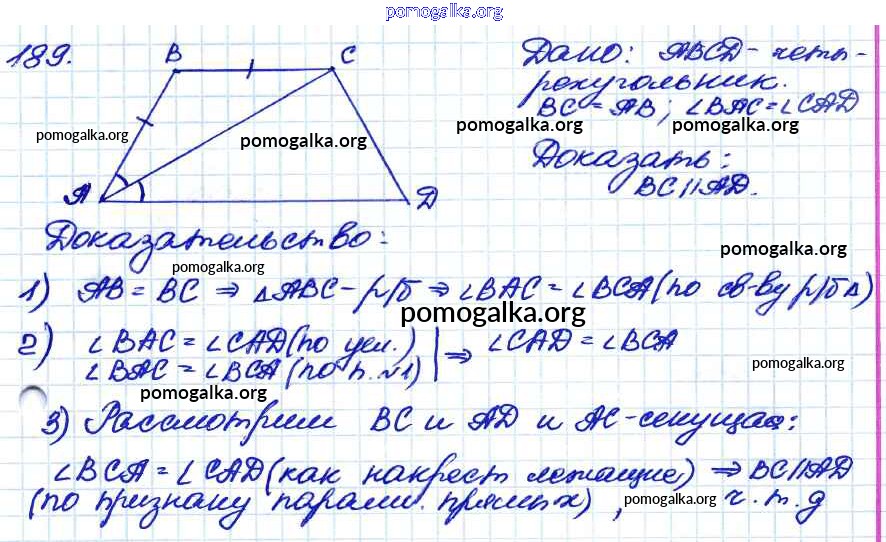 pomogalka.org
189.
B
C
A
D
pomogalka.org
pomogalka.org
Дано: ABCD-четы-
рехугольник.
BC = AB; ∠BAC=∠CAD
pomogalka.org
pomogalka.org
Доказать:
BC∥AD.
Доказательство:
pomogalka.org
pomogalka.org
1) AB = BC ⇒ △ABC-р/б ⇒ ∠BAC = ∠BCA (по св-ву р/б △)
pomogalka.org
2) ∠BAC = ∠CAD (по усл.) | ⇒ ∠CAD = ∠BCA
∠BAC = ∠BCA (по п.№1)
pomogalka.org
pomogalka.org
3) Рассмотрим BC и AD и AC-секущая:
∠BCA = ∠CAD (как накрест лежащие) ⇒ BC∥AD
(по признаку паралл. прямых), ч.т.д
pomogalka.org